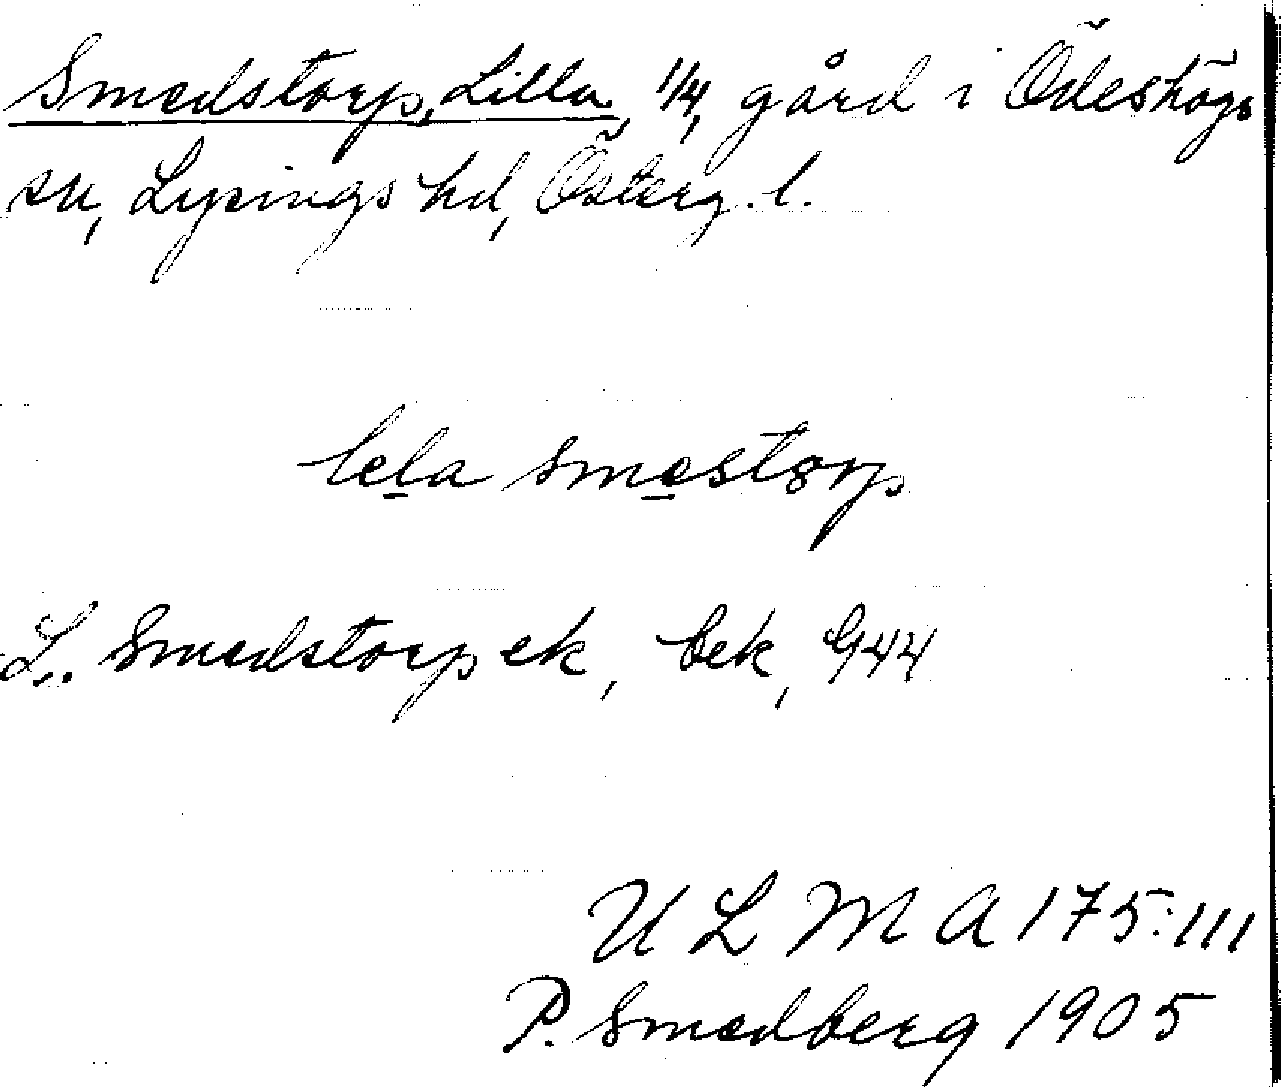 Smedstorp, Lilla, 1/4, gård i Ödeshögs
sn, Lysings hd, Österg. l.
lela smestorp
L. Smedstorp ek, bek, G44
U L M A 175:111
P. Smedberg 1905